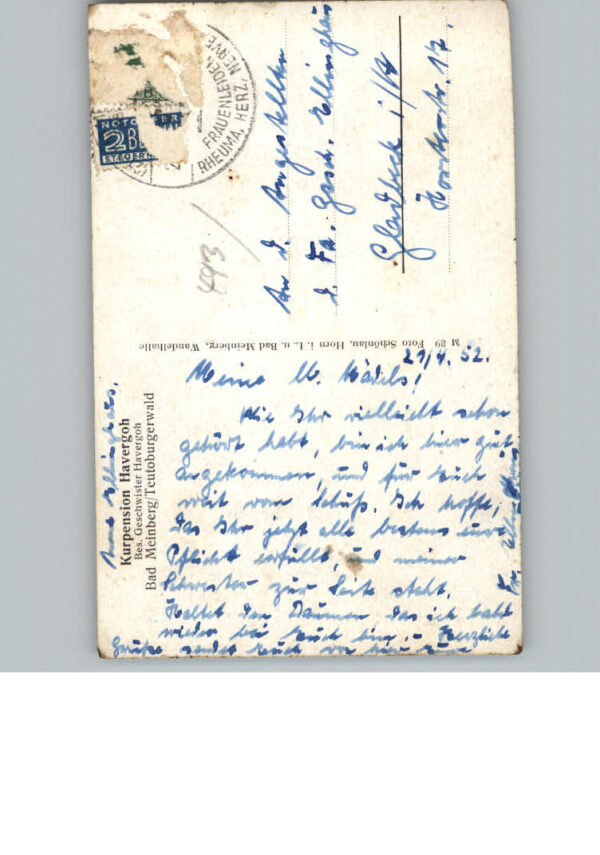 Kurpension Havergoh
Bes. Geschwister Havergoh
Bad Meinberg/Teutoburgerwald
M 89 Foto Schönlau, Horn i. L. u. Bad Meinberg, Wandelhalle
NOTO
2 BE
STEUER
FRAUENLEIDEN
RHEUMA, HERZ, NERVE
493
An d. Angestellten
d. Fa. Gesch. Ellinghaus
Gladbeck i/W
Horsterstr. 17.
29/4. 52.
Meine lb. Mädels!
Wie Ihr vielleicht schon
gehört habt, bin ich hier gut
angekommen, und für Euch
weit vom Schuß. Ich hoffe,
das Ihr jetzt alle bestens eure
Pflicht erfüllt, und meiner
Schwester zur Seite steht.
Haltet den Daumen das ich bald
wieder bei Euch bin. - Herzliche
Grüße sendet Euch von hier
Ellinghaus,